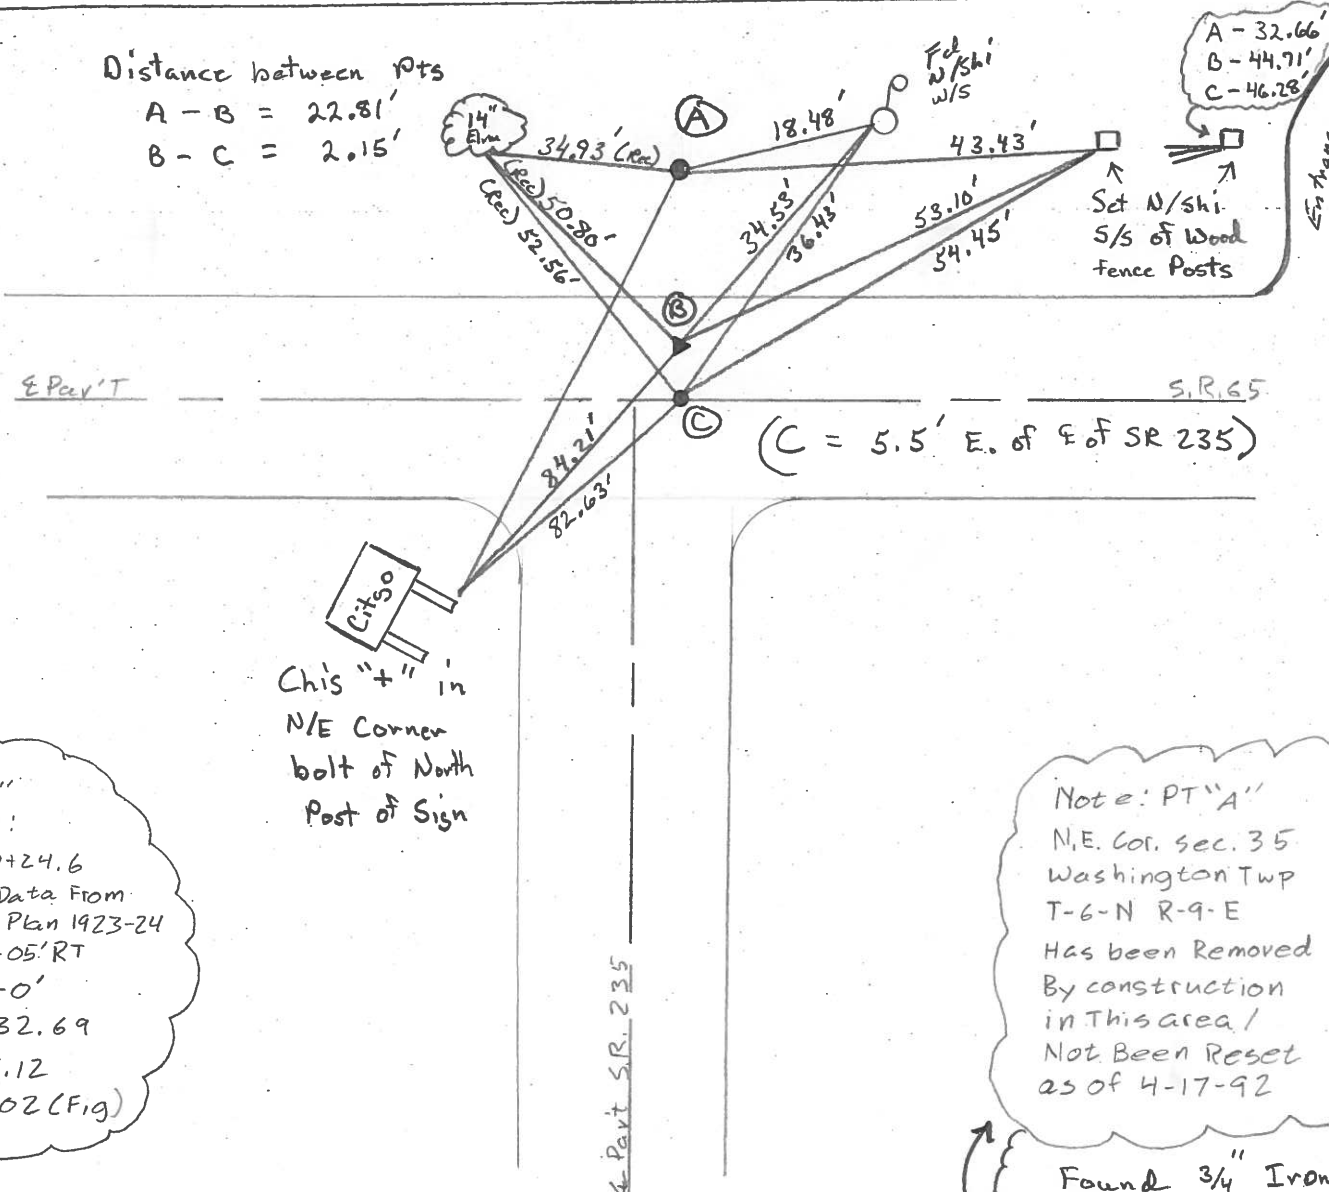 Distance between Pts
A - B = 22.81'
B - C = 2.15'
14"
Elm
34.93' (Rec)
(Rec) 50.80'
(Rec) 52.56'
A
18.48'
Fd
N/Shi
W/S
43.43'
34.53'
36.43'
53.10'
54.45'
A - 32.66'
B - 44.71'
C - 46.28'
Set N/Shi
S/S of Wood
fence Posts
B
℄ Pav'T
S.R. 65
C
(C = 5.5' E. of ℄ of SR 235)
84.21'
82.63'
Citgo
Chis "+" in
N/E Corner
bolt of North
Post of Sign
+24.6
Data From
Plan 1923-24
05' RT
-0'
32.69
.12
02 (Fig)
℄ Pav't S.R. 235
Note: PT "A"
N.E. Cor. sec. 35
Washington Twp
T-6-N R-9-E
Has been Removed
By construction
in This area /
Not Been Reset
as of 4-17-92
Found 3/4" Iron